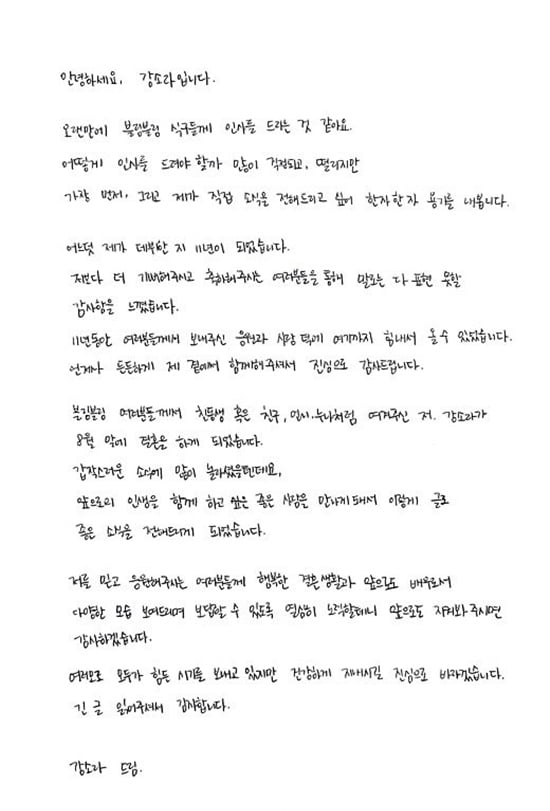 안녕하세요, 강소라입니다.
오랜만에 블링블링 식구들께 인사를 드리는 것 같아요.
어떻게 인사를 드려야 할까 많이 걱정되고, 떨리지만
가장 먼저, 그리고 제가 직접 소식을 전해드리고 싶어 한자 한자 용기를 내봅니다.
어느덧 제가 데뷔한 지 11년이 되었습니다.
저보다 더 기념해주시고 축하해주시는 여러분들을 통해 말로는 다 표현 못할
감사함을 느꼈습니다.
11년동안 여러분들께서 보내주신 응원과 사랑 덕에 여기까지 힘내서 올 수 있었습니다.
언제나 든든하게 제 곁에서 함께해주셔서 진심으로 감사드립니다.
블링블링 여러분들께서 친동생 혹은 친구, 언니·누나처럼 여겨주신 저. 강소라가
8월 말에 결혼을 하게 되었습니다.
갑작스러운 소식에 많이 놀라셨을텐데요,
앞으로의 인생을 함께 하고 싶은 좋은 사람을 만나게 돼서 이렇게 글로
좋은 소식을 전해드리게 되었습니다.
저를 믿고 응원해주시는 여러분들께 행복한 결혼생활과 앞으로도 배우로서
다양한 모습 보여드리며 보답할 수 있도록 열심히 노력할테니 앞으로도 지켜봐 주시면
감사하겠습니다.
여러모로 모두가 힘든 시기를 보내고 있지만 건강하게 지내시길 진심으로 바라겠습니다.
긴 글 읽어주셔서 감사합니다.
강소라 드림.